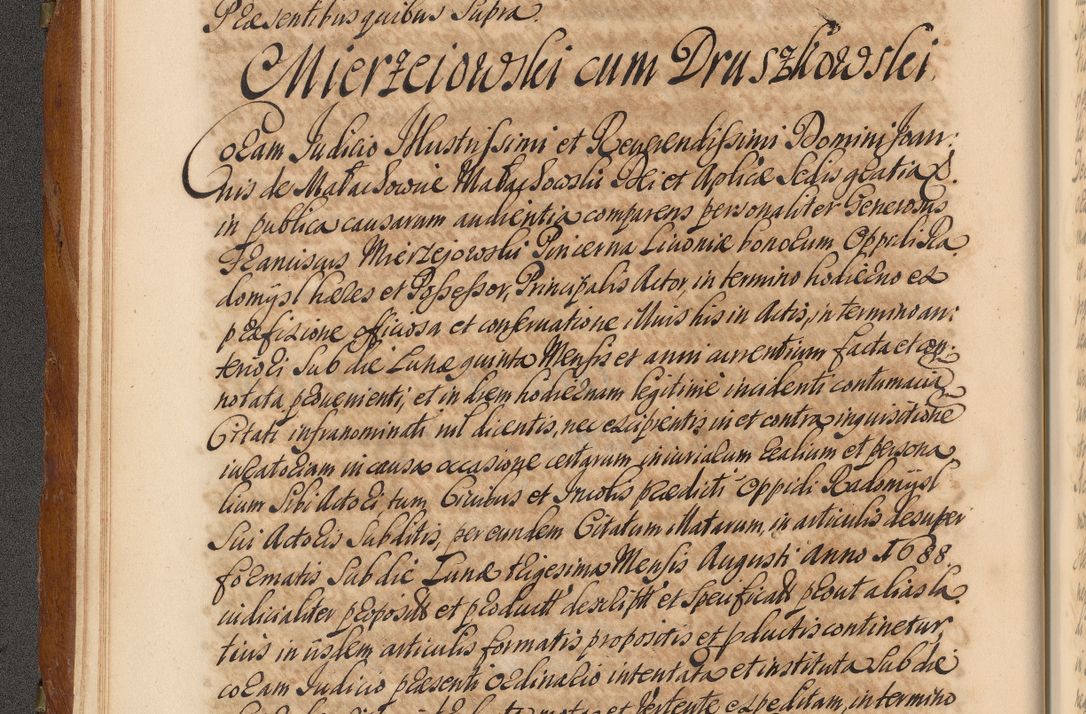 Præsentibus quibus Supra.
Mierzeiowski cum Druszkowski
Coram Judicio Illustrissimi et Reuerendissimi Domini Joan:
nis de Małachowice Małachowski Dei et Aplicæ Sedis gratia E.
in publica causarum audientia comparens personaliter Generosus
Franciscus Mierzejowski Pincerna Livoniæ bonorum Oppidi Ra
domysl hæres et Possessor, Principalis Actor, in termino hodierno ex
præfixione officiosa et conseruatione illius his in Actis, in termino an:
teriori Sub die Lunæ quinta Mensis et anni currentium facta et con:
notata prouenienti, et in diem hodiernam legitime incidenti contumacia
Citati infranominati nil dicentis, nec excipientis in et contra inquisitione
iuratoriam in causa occasione certarum iniuriarum realium et persona
lium Sibi Actori, tum Ciuibus et Incolis prædicti Oppidi Radomysl
Sui Actoris Subditis, per eundem Citatum illatarum, in articulis desuper
formatis Sub die Lunæ trigesima Mensis Augusti Anno 1688.
iudicialiter proposit et product descript et specificat prout alias la
tius in iisdem articulis formatis propositis et pductis continetur,
coram Judicio præsenti ordinario intentata et instituta Sub die
et vertente expeditam, in termino